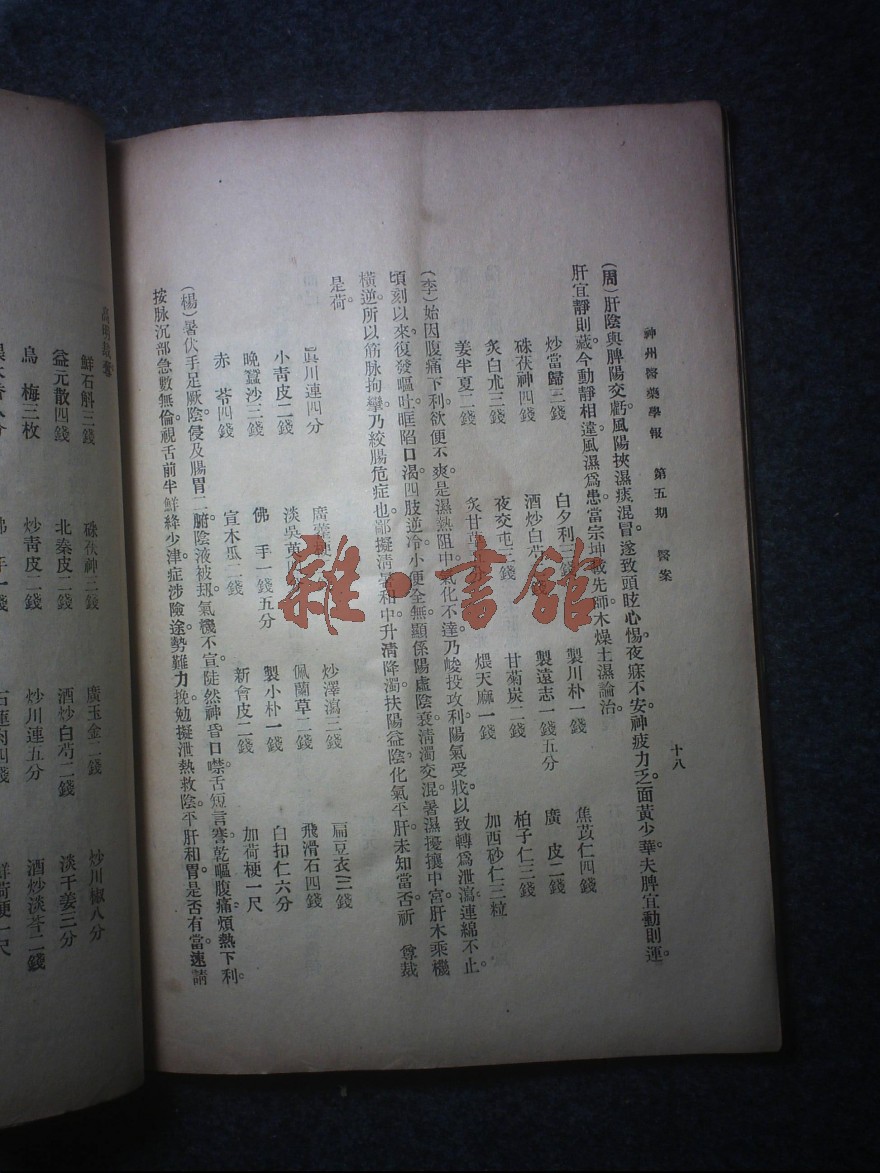 神州醫藥學報　第五期　醫案　十八
(周)肝陰與脾陽交虧。風陽挾濕痰混冒。遂致頭眩心惕。夜寐不安。神疲力乏。面黃少華。夫脾宜動則運。
肝宜靜則藏。今動靜相違。風濕爲患。當宗坤載先師。木燥土濕論治。
炒當歸三錢　白夕利三錢　製川朴一錢　焦苡仁四錢
硃茯神四錢　酒炒白芍　製遠志一錢五分　廣　皮二錢
炙白朮三錢　夜交屯三錢　甘菊炭二錢　柏子仁三錢
姜半夏二錢　炙甘草　煨天麻一錢　加西砂仁三粒
(李)始因腹痛下利。欲便不爽。是濕熱阻中。氣化不達。乃峻投攻利。陽氣受戕。以致轉爲泄瀉。連綿不止。
頃刻以來。復發嘔吐。眶陷口渴。四肢逆冷。小便全無。顯係陽虛陰衰。清濁交混。暑濕擾攘中宮。肝木乘機
橫逆。所以筋脉拘攣。乃絞腸危症也。鄙擬清暑和中。升清降濁。扶陽益陰。化氣平肝。未知當否。祈　尊裁
是荷。
眞川連四分　廣藿梗　炒澤瀉三錢　扁豆衣三錢
小青皮二錢　淡吳萸　佩蘭草二錢　飛滑石四錢
晚蠶沙三錢　佛　手一錢五分　製小朴一錢　白扣仁六分
赤　苓四錢　宣木瓜二錢　新會皮二錢　加荷梗一尺
(楊)暑伏手足厥陰。侵及腸胃二腑。陰液被刼。氣機不宣。陡然神昏口噤。舌短言謇。乾嘔腹痛。煩熱下利。
按脉沉部急數無倫。視舌前半鮮絳少津。症涉險途。勢難力挽。勉擬泄熱救陰。平肝和胃。是否有當。速請
高明裁奪
鮮石斛三錢　硃茯神三錢　廣玉金二錢　炒川椒八分
益元散四錢　北秦皮二錢　酒炒白芍二錢　淡干姜三分
烏　梅三枚　炒青皮二錢　炒川連五分　酒炒淡芩二錢
手一錢　石蓮肉四錢　鮮荷梗一尺
雜·書館